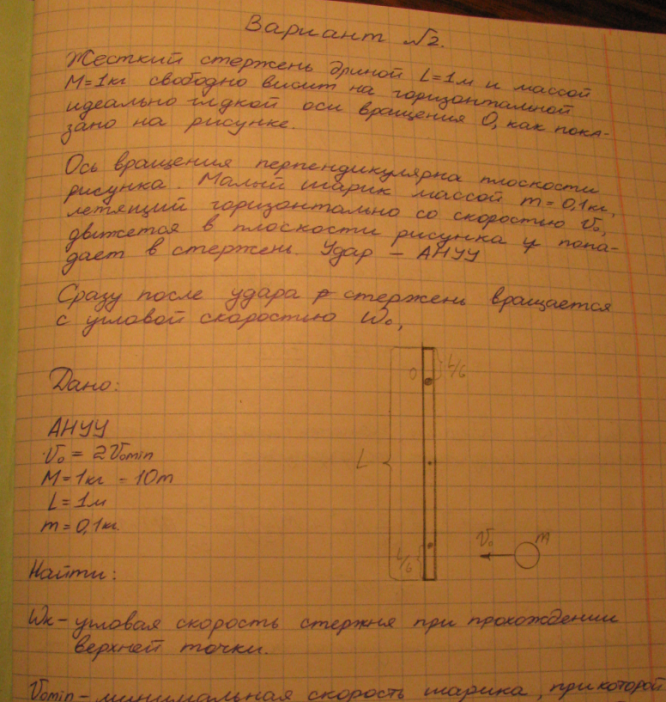 Вариант №2.
Жесткий стержень длиной L=1м и массой
M=1кг свободно висит на горизонтальной
идеально гладкой оси вращения O, как пока-
зано на рисунке.
Ось вращения перпендикулярна плоскости
рисунка. Малый шарик массой m=0,1кг,
летящий горизонтально со скоростью V₀,
движется в плоскости рисунка и попа-
дает в стержень. Удар – АНУУ
Сразу после удара стержень вращается
с угловой скоростью W₀,
Дано:
АНУУ
V₀ = 2V₀min
M=1кг = 10m
L=1м
m=0,1кг
Найти:
O
L/6
L
L/6
V₀
m
Wк – угловая скорость стержня при прохождении
верхней точки.
V₀min – минимальная скорость шарика, при которой